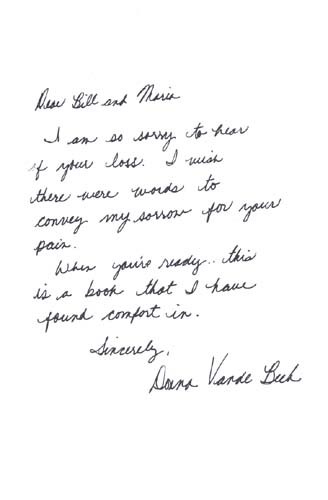 Dear Bill and Maria
I am so sorry to hear
of your loss. I wish
there were words to
convey my sorrow for your
pain.
When you're ready.. this
is a book that I have
found comfort in.
Sincerely,
Donna Vande Beek